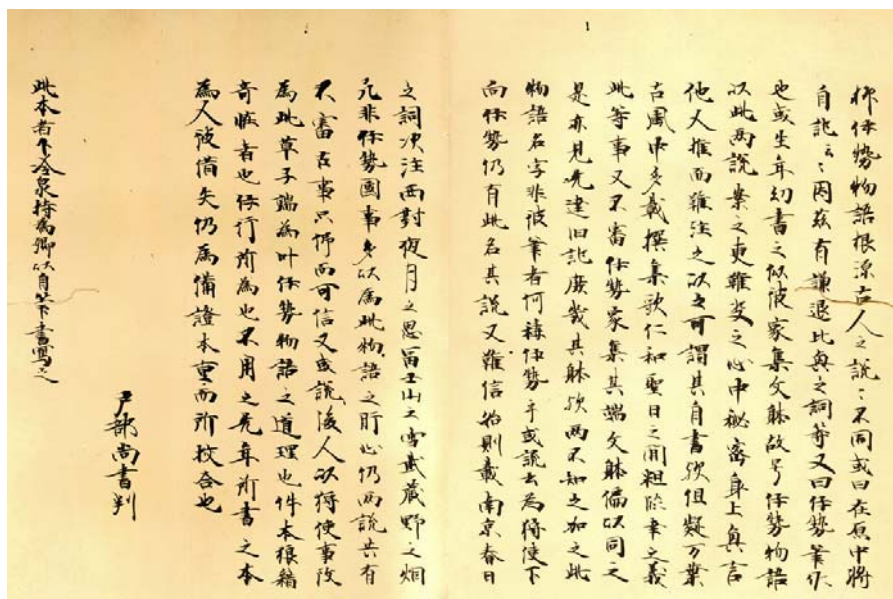 抑伊勢物語根源古人之説〻不同或曰在原中将
自記云〻因茲有謙退比興之詞等又曰伊勢筆作
也或生年幻書之似彼家集文躰故号伊勢物語
以此両説案之更難決之心中秘密身上興言
他人推而難注之以之可謂其自書歟但疑万葉
古風中多載撰集歌仁和聖日之間粗除幸之義
此等事又不審伊勢家集其端文躰偏以同之
是亦見先達旧記庶幾其躰歟両不知之加之此
物語名字非彼筆者何称伊勢乎或説云為狩使下
向伊勢仍有此名其説又難信始則載南京春日
之詞次注西対夜月之思富士山之雪武蔵野之烟
凡非伊勢国事多以為此物語之肝心仍両説共有
不審古事只仰而可信又或説後人以狩使事改
為此草子端為叶伊勢物語之道理也件本狼藉
奇恠者也伊行所為也不用之先年所書之本
為人被借失仍為備證本重而所校合也
戸部尚書判
此本者下冷泉持為卿以自筆下書写之